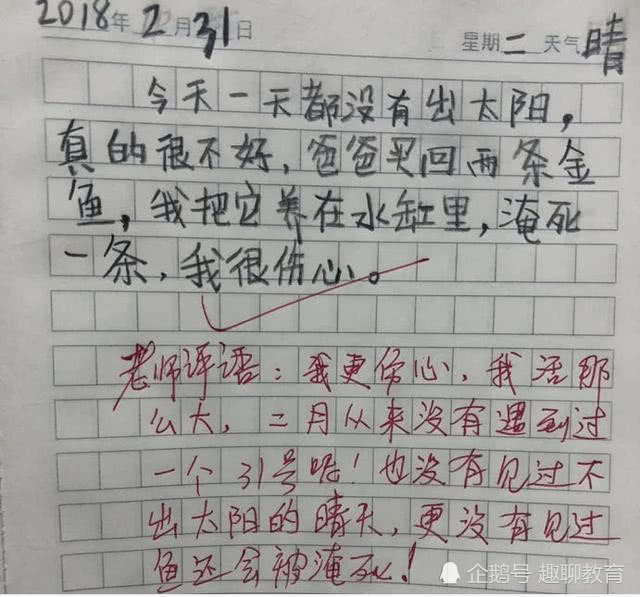 2018年2月31日 星期二 天气晴
今天一天都没有出太阳，
真的很不好，爸爸买回两条金
鱼，我把它养在水缸里，淹死
一条，我很伤心。
老师评语：我更伤心，我活那
么大，二月从来没有遇到过
一个31号呢！也没有见过不
出太阳的晴天，更没有见过
鱼还会被淹死！
企鹅号 趣聊教育